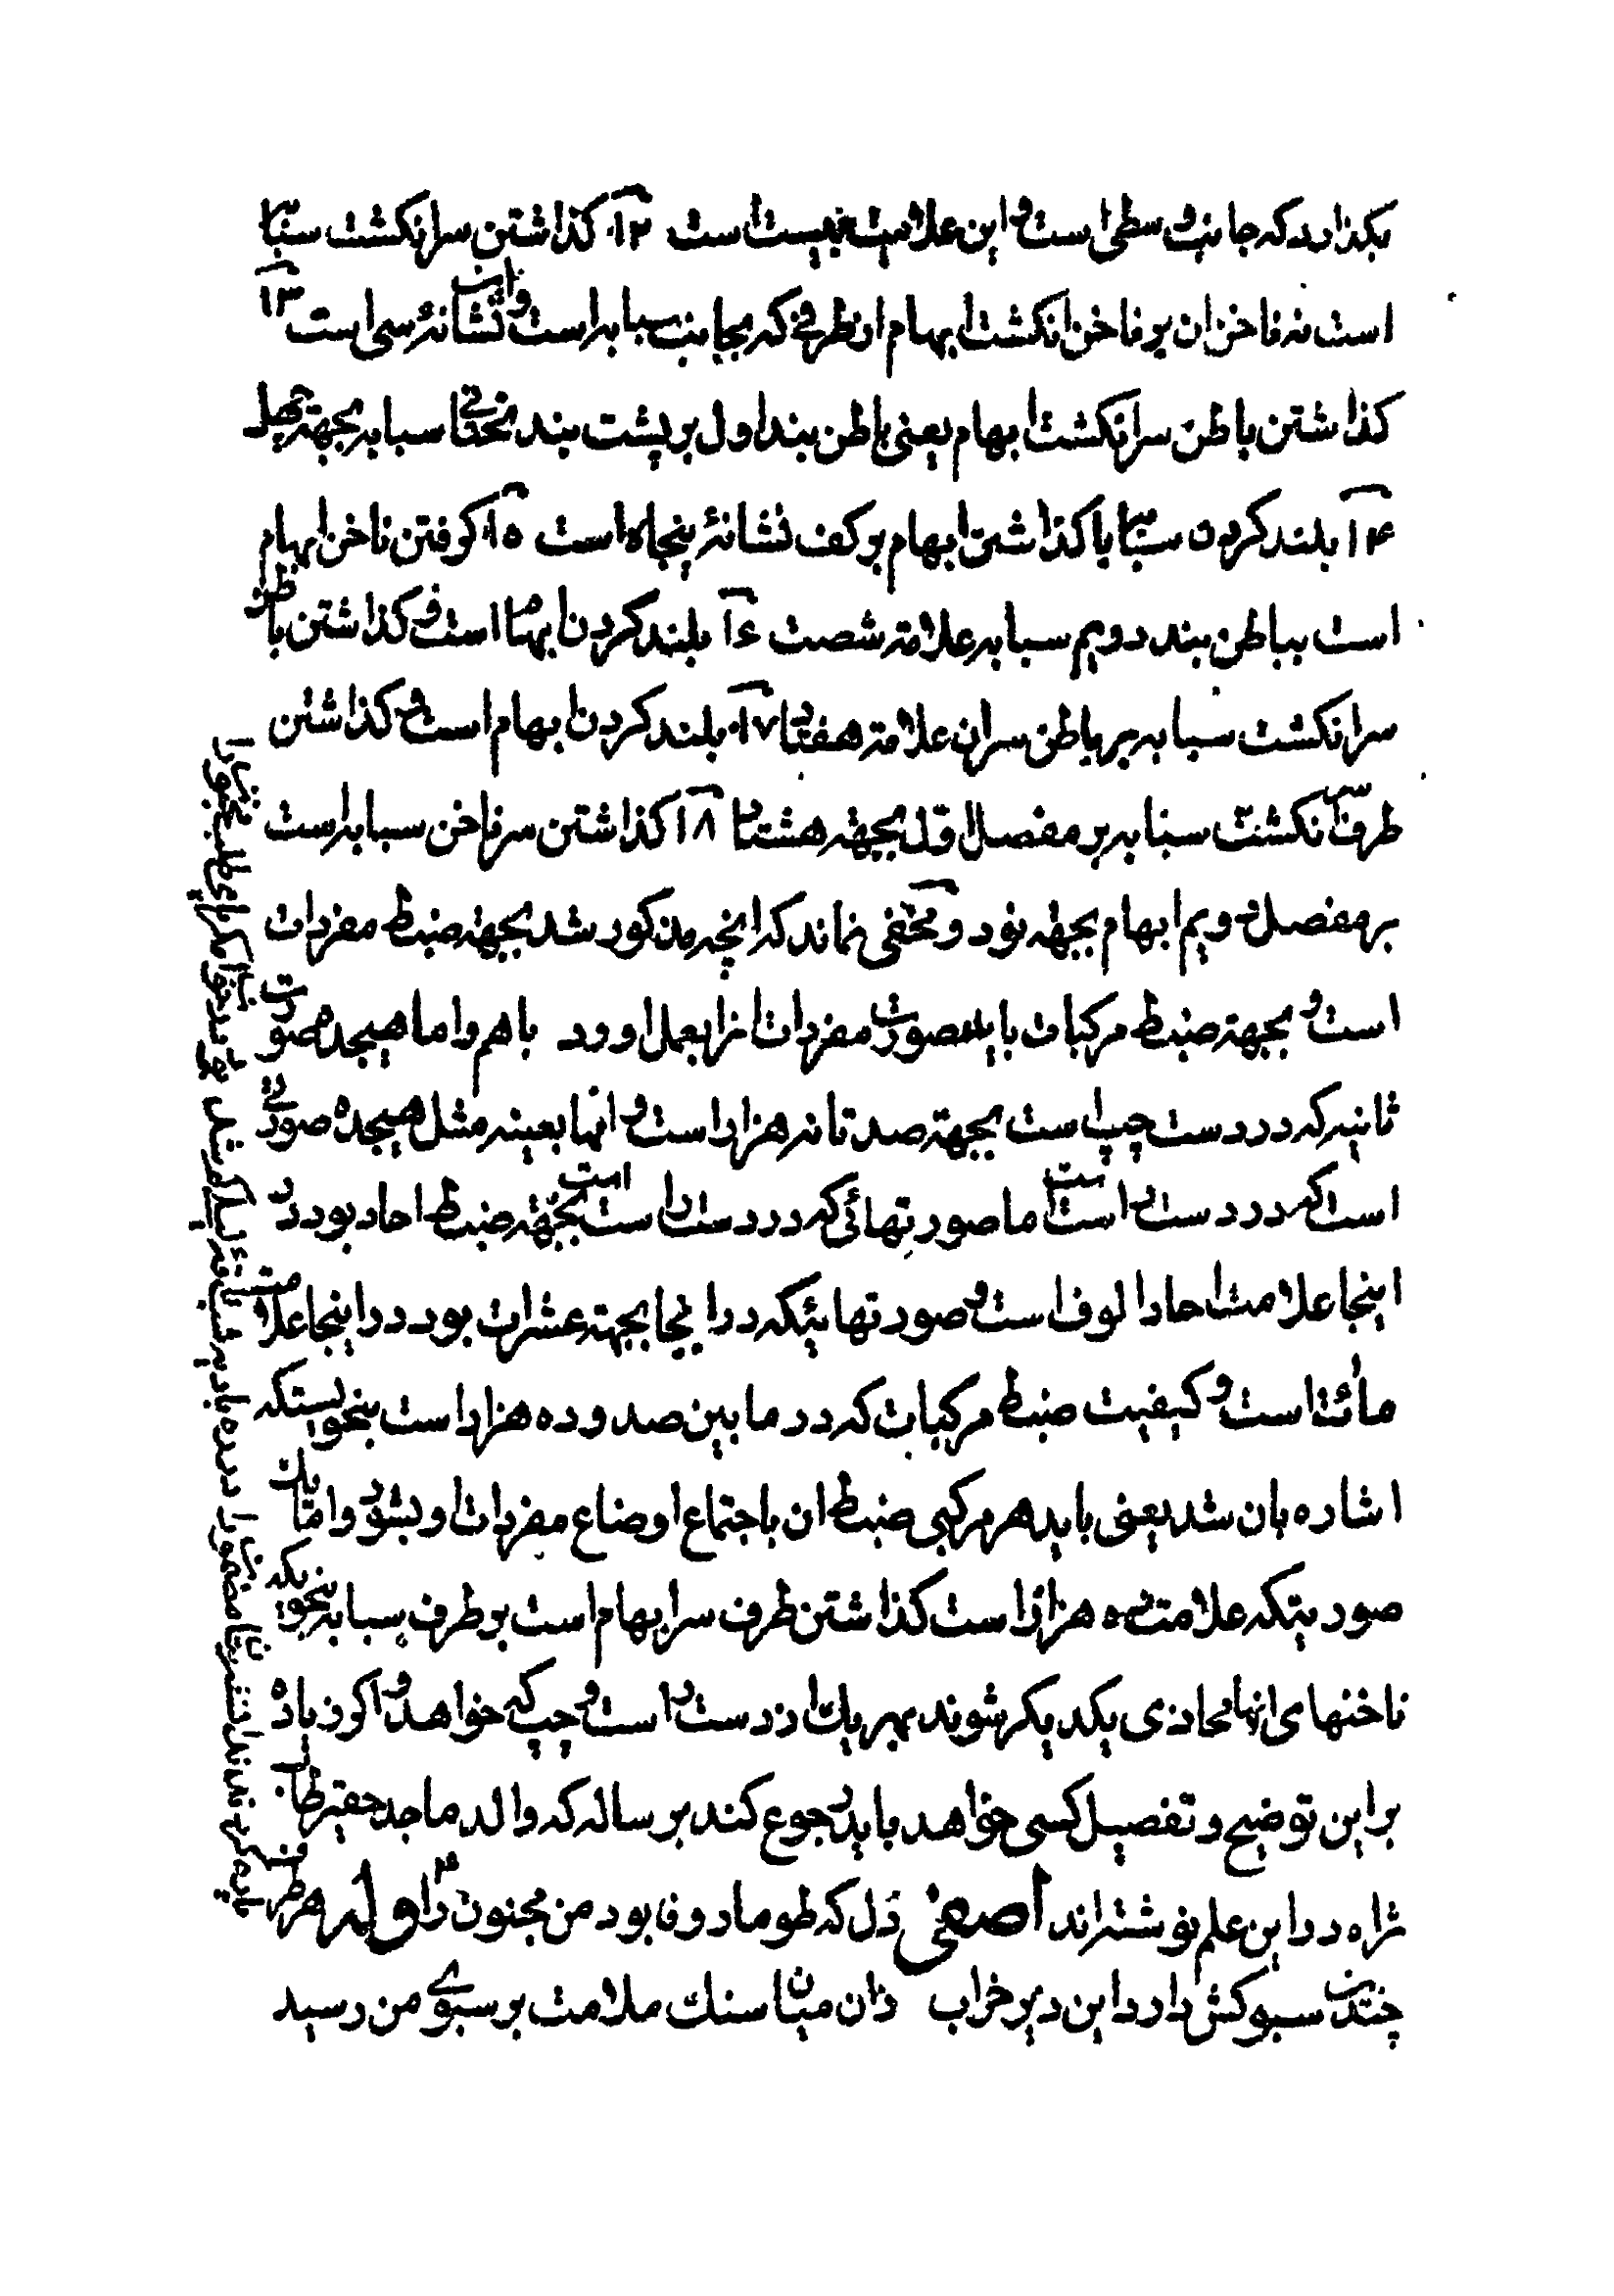 بکذارد که جانب وسطی است و این علامت بیست است ۱۲ کذاشتن سر انکشت سبابه
است نه ناخن ان بر ناخن انکشت ابهام از طرفی که بجانب سبابه است و این نشانهٔ سی است ۱۳
کذاشتن باطن سر انکشت ابهام یعنی باطن بند اول بر پشت بند تحتانی سبابه بجهته چهل
۱۴ بلند کردن سبابه با کذاشتن ابهام بر کف نشانهٔ پنجاه است ۱۵ کرفتن ناخن ابهام
است بباطن بند دویم سبابه علامة شصت ۱۶ بلند کردن ابهام است و کذاشتن باطن
سر انکشت سبابه بر باطن سر ان علامة هفتاد ۱۷ بلند کردن ابهام است و کذاشتن
طرف سر انکشت سبابه بر مفصل اول بجهته هشتاد ۱۸ کذاشتن سر ناخن سبابه است
بر مفصل دویم ابهام بجهته نود و مخفی نماند که انچه مذکور شد بجهته ضبط مفردات
است و بجهته ضبط مرکبات باید صورت مفردات انرا بعمل اورد با هم و اما هیجده صورت
ثانیه که در دست چپ است بجهته صد تا نه هزار است و انها بعینه مثل هیجده صورتی
است که در دست راست است اما صورتهائی که در دست راست است بجهته ضبط احاد بود در
اینجا علامت احاد الوف است و صورتهائیکه در انجا بجهته عشرات بود در اینجا علامت
مائة است و کیفیت ضبط مرکبات که در ما بین صد و ده هزار است بنحویستکه
اشاره بان شد یعنی باید هر مرکبی ضبط ان باجتماع اوضاع مفردات او بشود و اما بان
صورتیکه علامت ده هزار است کذاشتن طرف سر ابهام است بر طرف سبابه بنحویکه
ناخنهای انها محاذی یکدیکر شوند بهر یك از دست راست و چپ که خواهد و اکر زیاده
بر این توضیح و تفصیل کسی خواهد باید رجوع کند برساله که والد ماجد حقیر طاب
ثراه در این علم نوشته اند اصفی دل که طومار وفا بود من مجنون را وله هر طرف
چندین سبوکش دارد این دیر خراب زان میان سنك ملامت بر سبوی من رسید